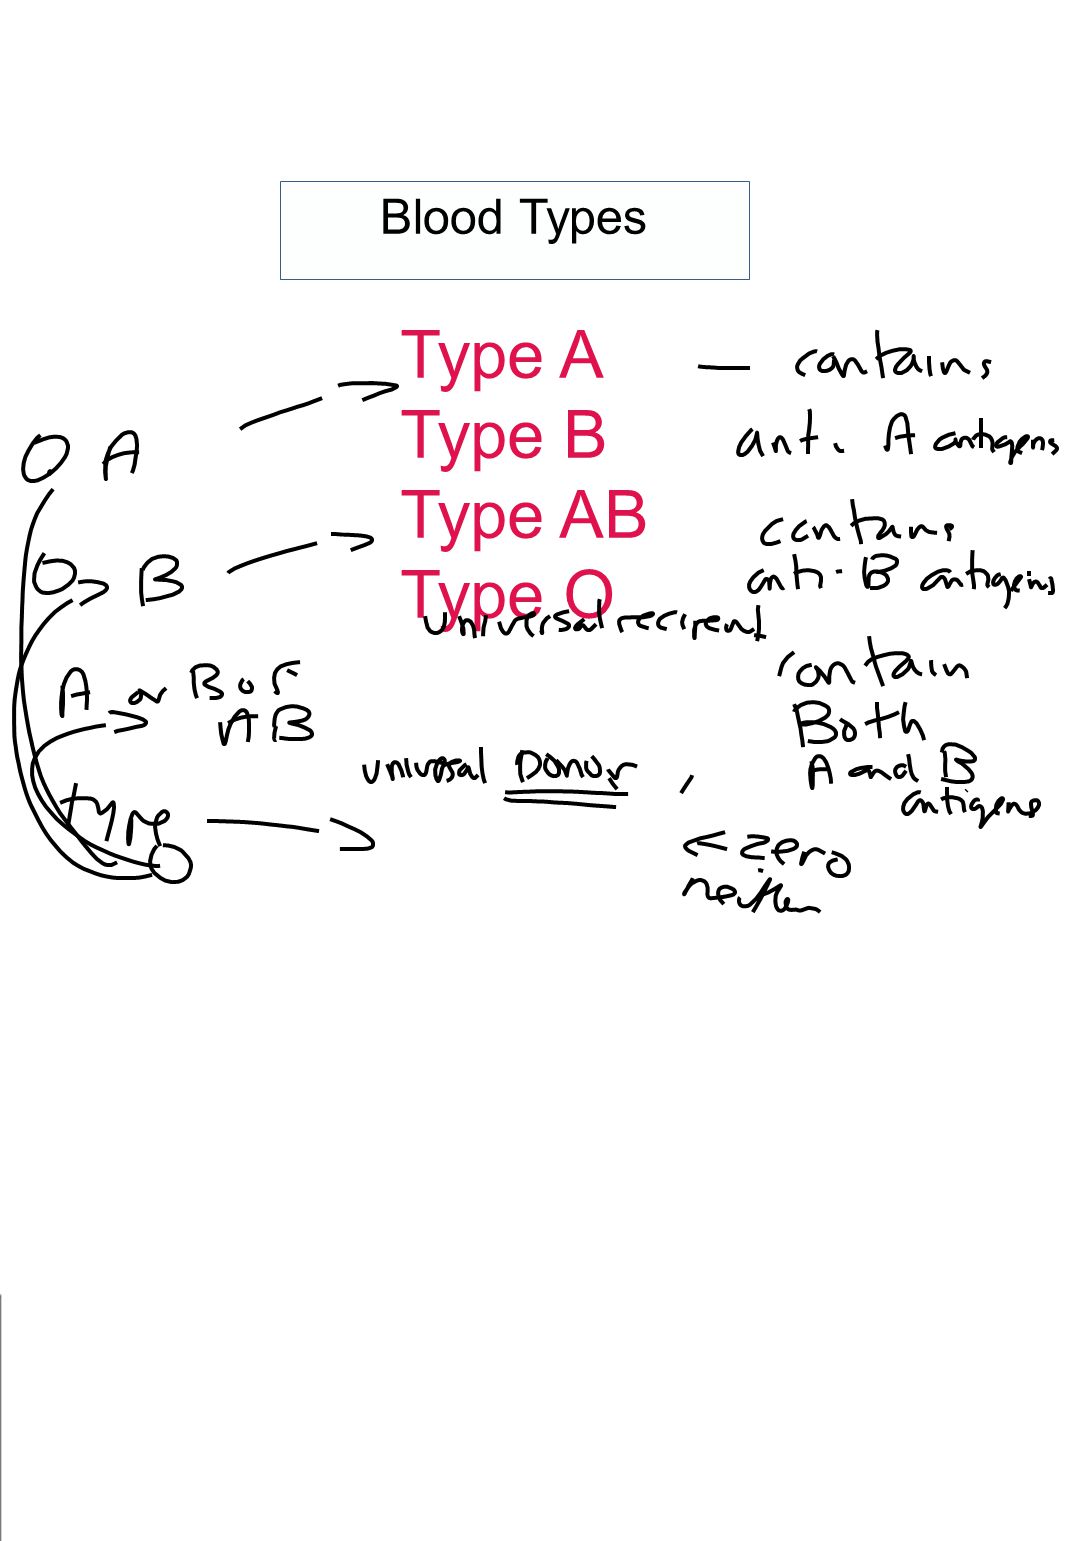 Blood Types
Type A
— contains
anti A antigens
O A
Type B
Type AB
contains
anti-B antigens
O B
Type O
universal recipent
contain
Both
A and B
antigens
A or B or
AB
universal Donor
type
O
zero
neither